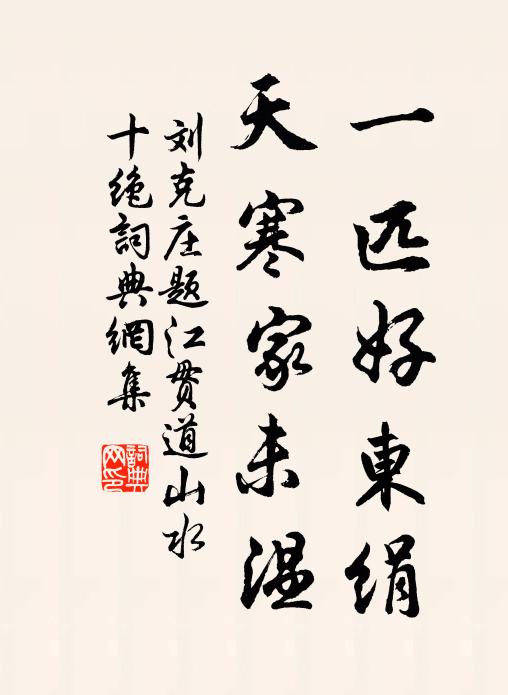 一匹好東絹
天寒家未温
刘克庄题江贯道山水
十绝詞典網集
詞典網印